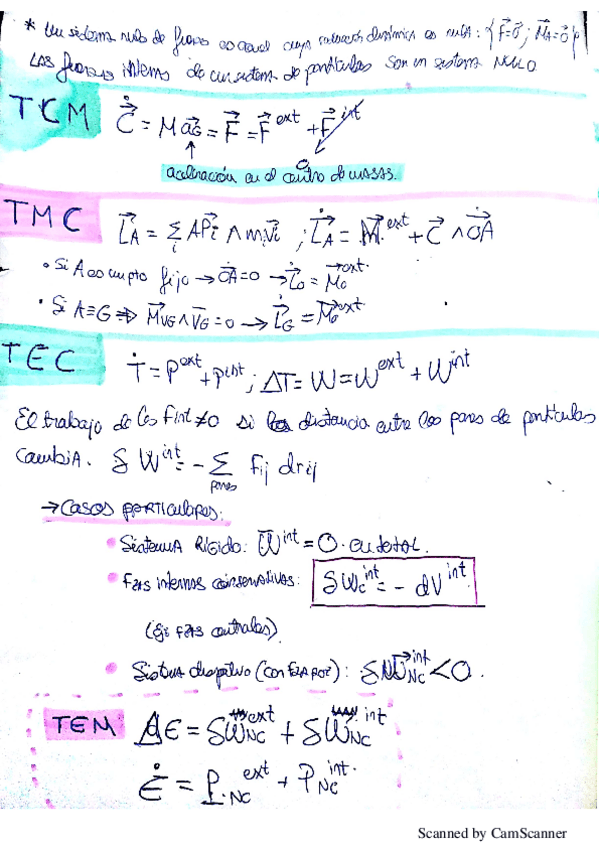 * Un sistema nulo de fuerzas es aquel cuya resultante dinámica es nula: {F⃗=0⃗; M⃗_A=0⃗}
Las fuerzas internas de un sistema de partículas son un sistema NULO
TCM C⃗̇ = M a⃗_G = F⃗ = F⃗^ext + F⃗^int
0
aceleración en el centro de masas.
TMC L⃗_A = Σ_i AP⃗_i ∧ m_i v⃗_i ; L⃗̇_A = M⃗^ext + C⃗ ∧ OA⃗̇
• Si A es un pto fijo → OA⃗̇=0 → L⃗̇_0 = M⃗_0^ext.
• Si A≡G ⇒ M⃗v_G ∧ v⃗_G = 0 → L⃗̇_G = M⃗_G^ext
TEC Ṫ = P^ext + P^int ; ΔT = W = W^ext + W^int
El trabajo de las Fint ≠ 0 si la distancia entre los pares de partículas
cambia. δW^int = - Σ_pares f_ij dr_ij
→ Casos particulares:
• Sistema Rígido: W^int = 0 en total.
• Fzas internas conservativas: δW_C^int = - dV^int
(Ej: fzas centrales).
• Sistema disipativo (con FZA ROZ): δW_NC^int < 0.
TEM ΔE = δW_NC^ext + δW_NC^int
Ė = P_NC^ext + P_NC^int.
Scanned by CamScanner